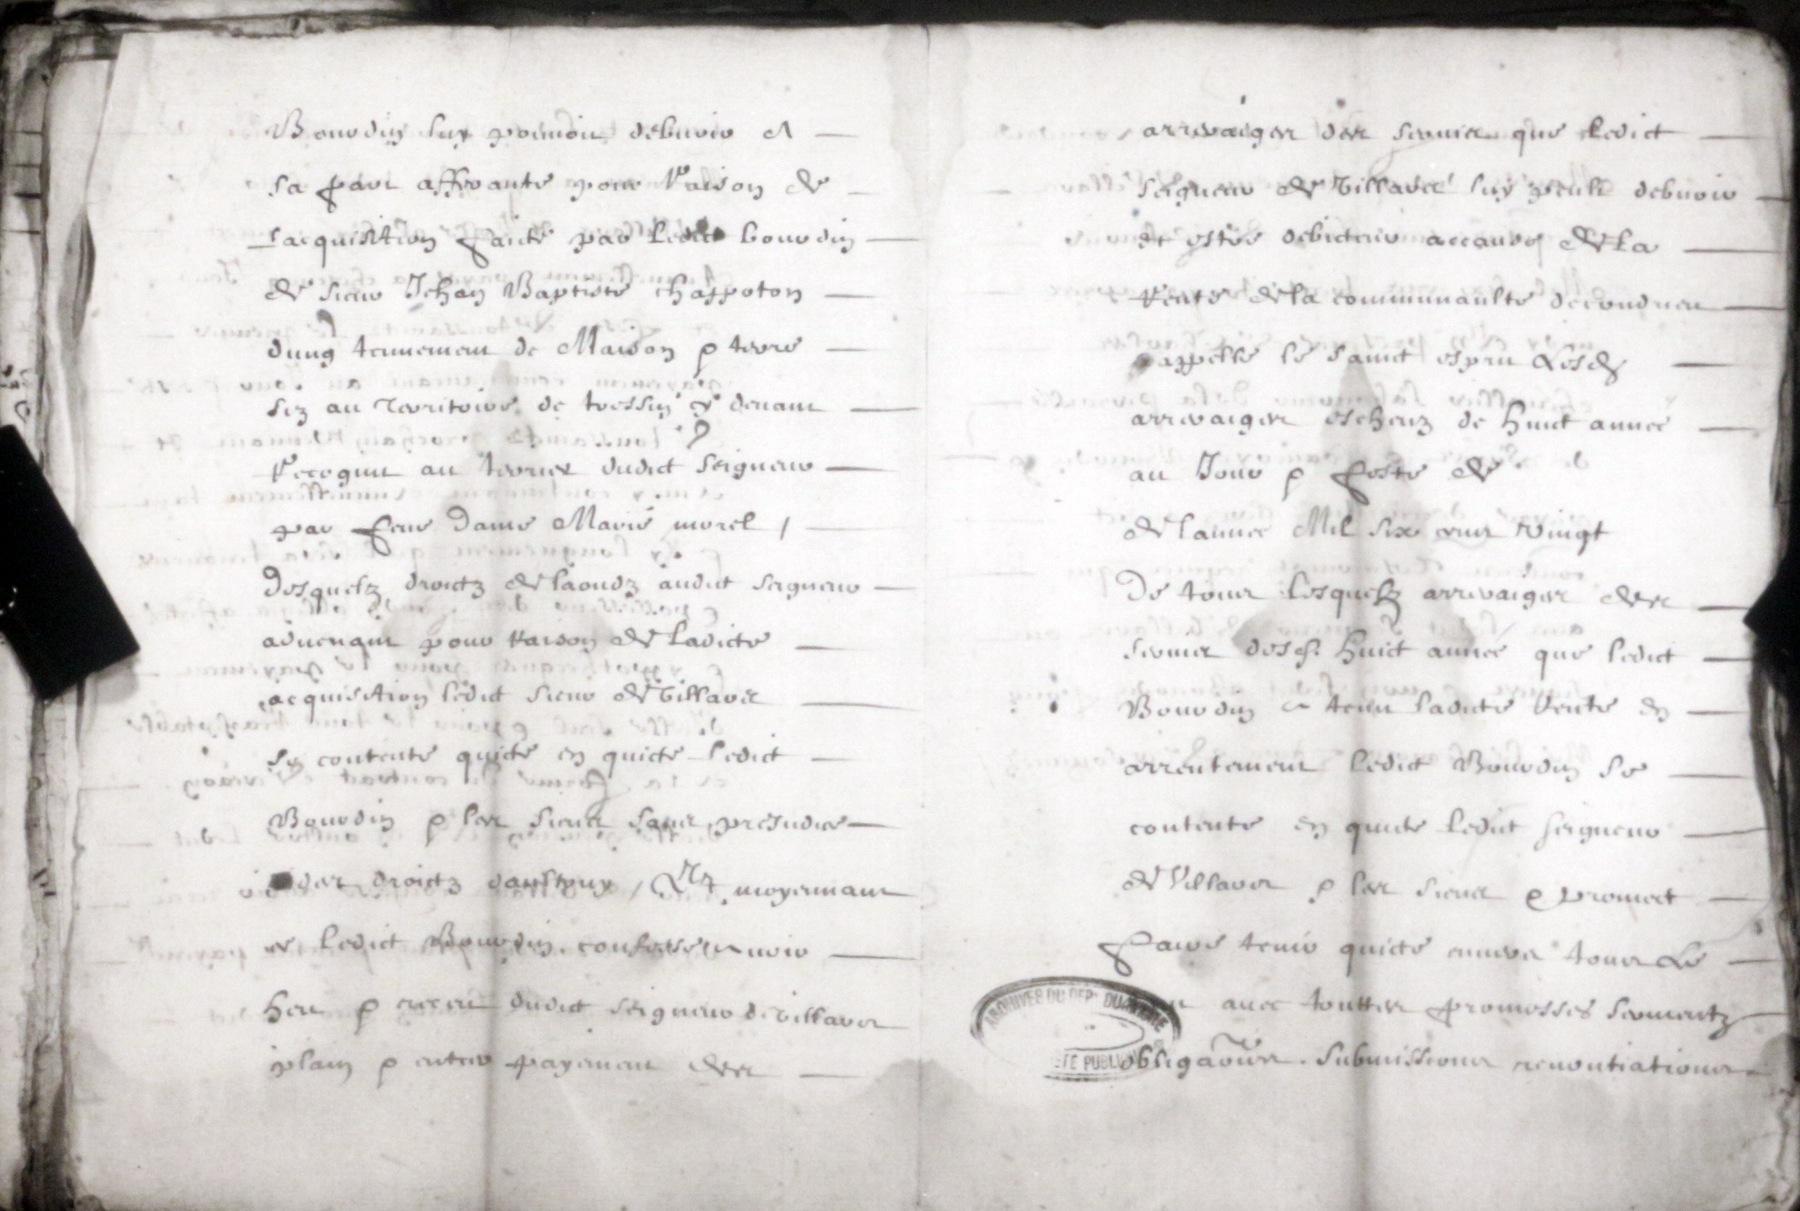 Bourdin luy pouvoit debvoir et
sa part afferante pour Raison de
Lacquisition faite par Ledict bourdin
de sieur Jehan Baptiste chappoton
dung tennement de Maison & terre
siz au Territoire de tressin & devant
Recogneu au terrier dudict seigneur
par feue dame Marie morel /
Desquelz droictz de laondz audict seigneur
advenant pour Raison de Ladicte
acquisition ledict sieur de Villars
se contente quicte en quicte Ledict
Bourdin & les siens sans prejudice
des droictz / Et moyennant
ce Ledict Bourdin confesse avoir
heu & receu dudict seigneur de Villars
plain & entier payement des
arreraiges des servies que Ledict
seigneur de Villars luy peult debvoir
et estre debiteur a cause de La
Rente de la communaulte de
appelle le sainct esprit Lesd
arreraiges escheuz de huict annee
au Jour & feste de
de lannee Mil six cent vingt
De tous Lesquelz arreraiges des
servies desd huict annee que ledict
Bourdin a tenu ladicte Rente en
arrentement ledict Bourdin se
contente en quicte Ledict seigneur
de Villars & les siens & promect
faire tenir quicte envers tous
avec touttes promesses sermentz
obligations submissions renontiations
ARCHIVES DU DEPT DU